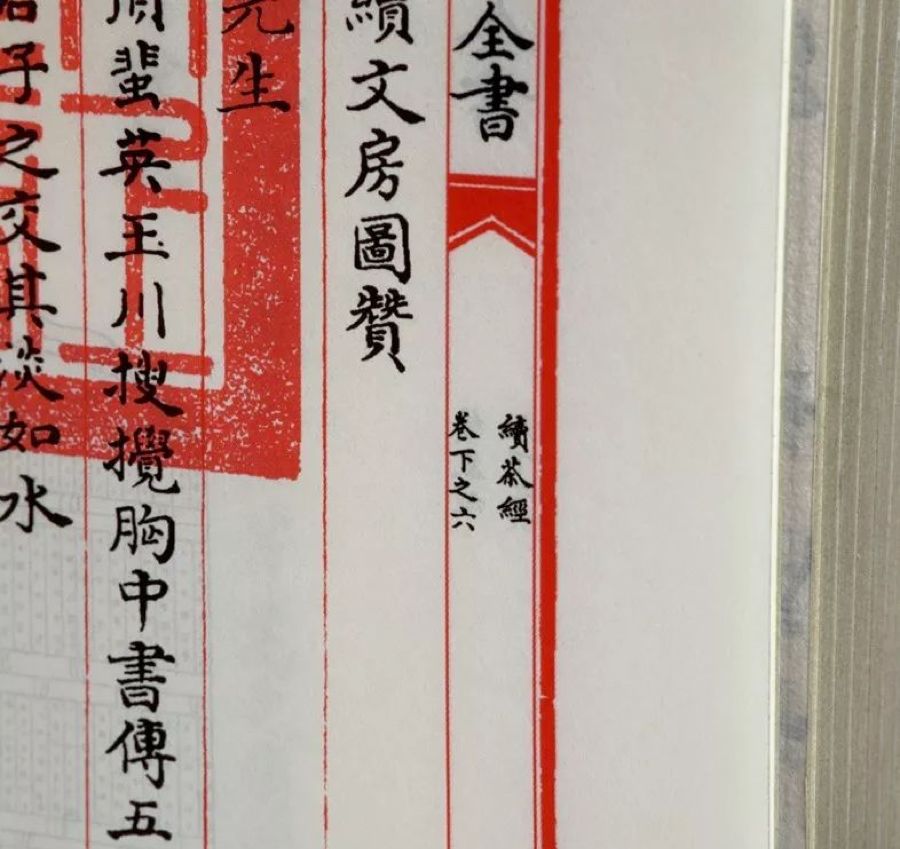 全書
續茶經
卷下之六
續文房圖贊
先生
蜚英玉川搜攪胸中書傳五
君子之交其淡如水